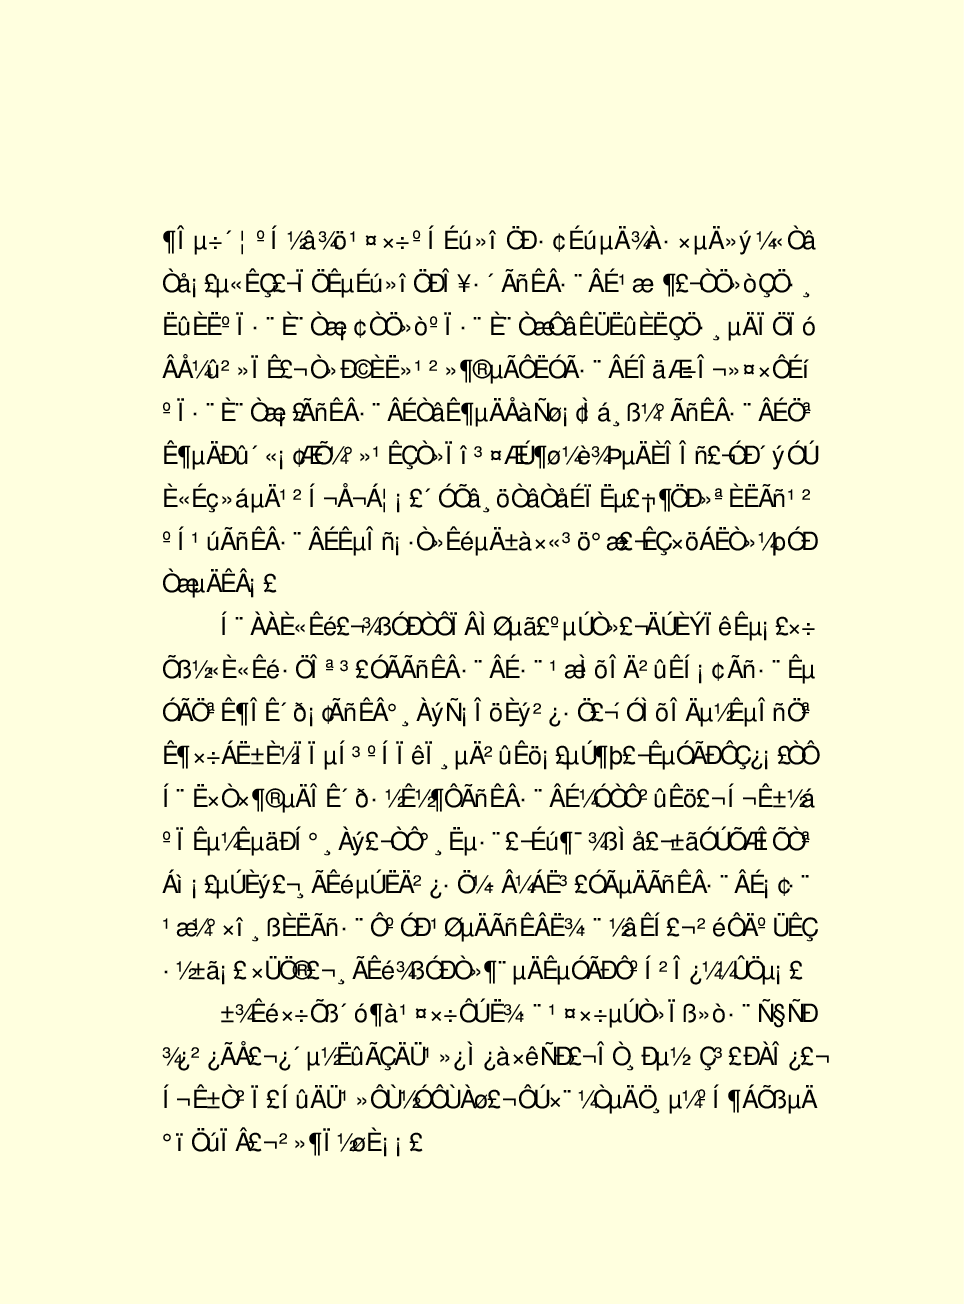 ¶Îµ÷´¦ºÍ½â¾ö¹¤×÷ºÍÉú»îÖÐ·¢ÉúµÄ¾À·×µÄ»ý¼«Òâ
Òå¡£µ«ÊÇ£¬ÏÖÊµÉú»îÖÐÎ¥·´ÃñÊÂ·¨ÂÉ¹æ¶¨£¬ÒÖ»òÇÖ·¸
ËûÈËºÏ·¨È¨Òæ¡¢ÒÖ»òºÏ·¨È¨ÒæÔâÊÜËûÈËÇÖ·¸µÄÏÖÏó
ÂÅ¼û²»ÏÊ£¬Ò»Ð©ÈË»¹²»¶®µÃÔËÓÃ·¨ÂÉÎäÆ÷Î¬»¤×ÔÉí
ºÏ·¨È¨Òæ¡£ÃñÊÂ·¨ÂÉÒâÊ¶µÄÅàÑø¡¢Ìá¸ß¼°ÃñÊÂ·¨ÂÉÖª
Ê¶µÄÐû´«¡¢ÆÕ¼°»¹ÊÇÒ»Ïî³¤ÆÚ¶ø¼è¾ÞµÄÈÎÎñ£¬ÓÐ´ýÓÚ
È«Éç»áµÄ¹²Í¬Å¬Á¦¡£´ÓÕâ¸öÒâÒåÉÏËµ£¬¡¶ÖÐ»ªÈËÃñ¹²
ºÍ¹úÃñÊÂ·¨ÂÉÊµÎñ¡·Ò»ÊéµÄ±à×«³ö°æ£¬ÊÇ×öÁËÒ»¼þÓÐ
ÒæµÄÊÂ¡£
Í¨ÀÀÈ«Êé£¬¾ßÓÐÒÔÏÂÌØµã£ºµÚÒ»£¬ÄÚÈÝÏêÊµ¡£×÷
Õß½«È«Êé·ÖÎª³£ÓÃÃñÊÂ·¨ÂÉ·¨¹æÌõÎÄ²ûÊÍ¡¢Ãñ·¨Êµ
ÓÃÖªÊ¶ÎÊ´ð¡¢ÃñÊÂ°¸ÀýÑ¡ÎöÈý²¿·Ö£¬´ÓÌõÎÄµ½ÊµÎñÖª
Ê¶×÷ÁË±È½ÏÏµÍ³ºÍÏêÏ¸µÄ²ûÊö¡£µÚ¶þ£¬ÊµÓÃÐÔÇ¿¡£ÒÔ
Í¨Ë×Ò×¶®µÄÎÊ´ð·½Ê½¶ÔÃñÊÂ·¨ÂÉ¼ÓÒÔ²ûÊö£¬Í¬Ê±½á
ºÏÊµ¼ÊµäÐÍ°¸Àý£¬ÒÔ°¸Ëµ·¨£¬Éú¶¯¾ßÌå£¬±ãÓÚÕÆÎÕÒª
Áì¡£µÚÈý£¬¸ÃÊéµÚËÄ²¿·Ö¼¯Â¼ÁË³£ÓÃµÄÃñÊÂ·¨ÂÉ¡¢·¨
¹æ¼°×î¸ßÈËÃñ·¨ÔºÓÐ¹ØµÄÃñÊÂË¾·¨½âÊÍ£¬²éÔÄºÜÊÇ
·½±ã¡£×ÜÖ®£¬¸ÃÊé¾ßÓÐÒ»¶¨µÄÊµÓÃÐÔºÍ²Î¿¼¼ÛÖµ¡£
±¾Êé×÷Õß´ó¶à¹¤×÷ÔÚË¾·¨¹¤×÷µÚÒ»Ïß»ò·¨Ñ§ÑÐ
¾¿²¿ÃÅ£¬¿´µ½ËûÃÇÄÜ¹»¿Ì¿à×êÑÐ£¬ÎÒ¸Ðµ½·Ç³£ÐÀÎ¿£¬
Í¬Ê±Ò²Ï£ÍûÄÜ¹»ÔÙ½ÓÔÙÀø£¬ÔÚ×¨¼ÒµÄÖ¸µ¼ºÍ¶ÁÕßµÄ
°ïÖúÏÂ£¬²»¶Ï½øÈ¡¡£